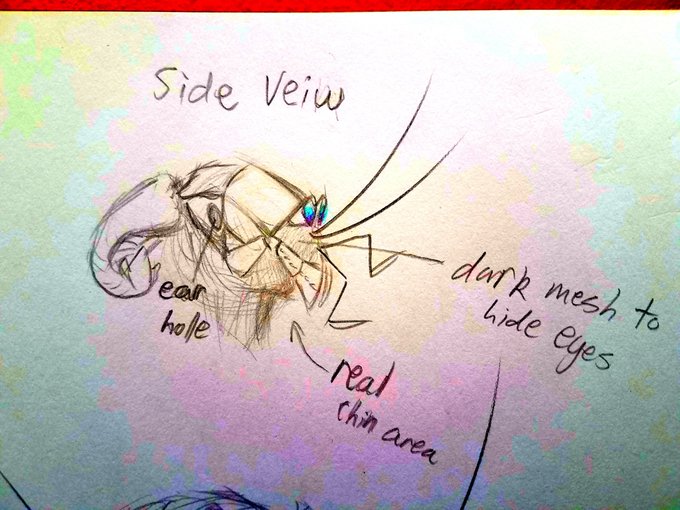 Side Veiw
ear
holle
dark mesh to
hide eyes
real
chin area